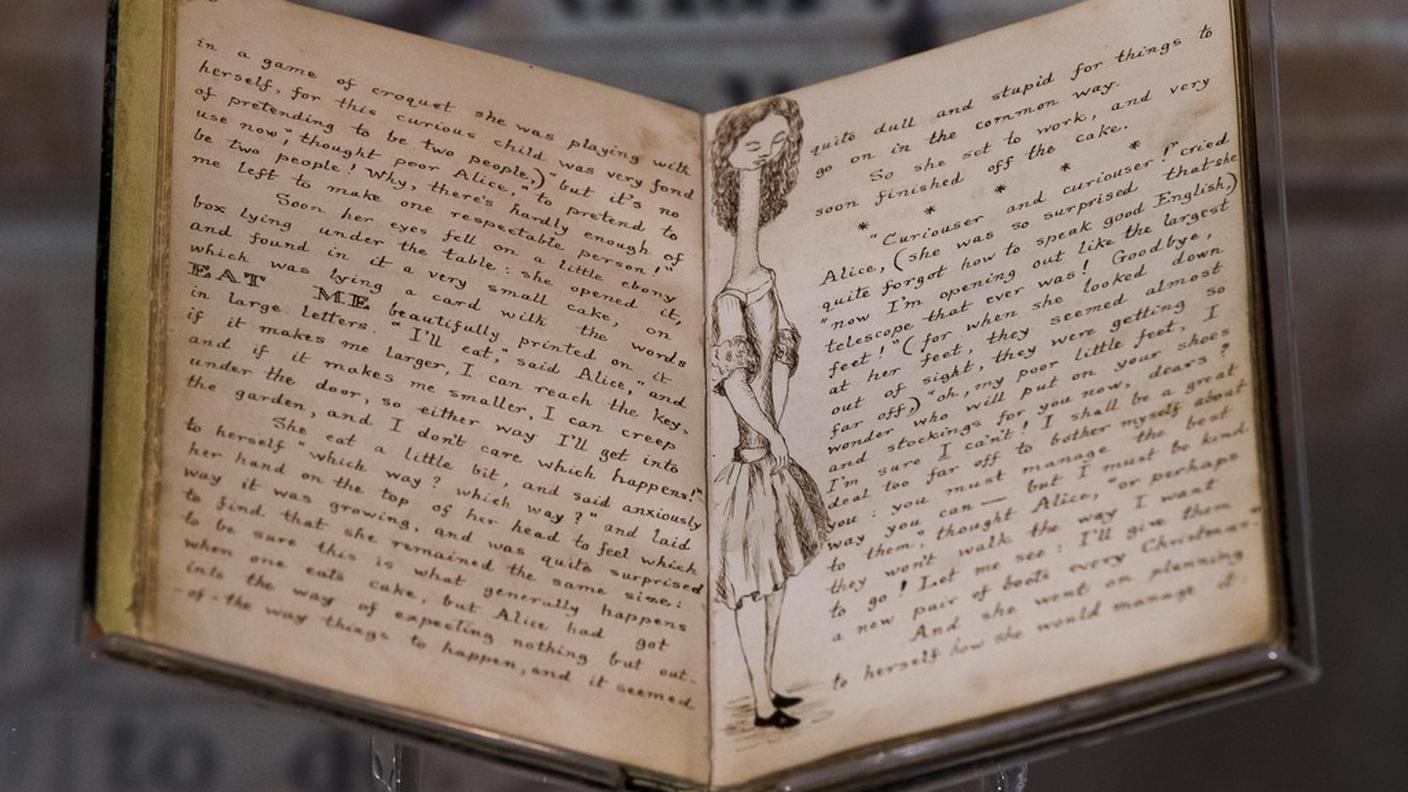 in a game of croquet she was playing with
herself, for this curious child was very fond
of pretending to be two people,) "but it's no
use now," thought poor Alice, "to pretend to
be two people! Why, there's hardly enough of
me left to make one respectable person!"
Soon her eyes fell on a little ebony
box lying under the table: she opened it,
and found in it a very small cake, on
which was lying a card with the words
EAT ME beautifully printed on it
in large letters. "I'll eat," said Alice, "and
if it makes me larger, I can reach the key,
and if it makes me smaller, I can creep
under the door, so either way I'll get into
the garden, and I don't care which happens!"
She eat a little bit, and said anxiously
to herself "which way? which way?" and laid
her hand on the top of her head to feel which
way it was growing, and was quite surprised
to find that she remained the same size:
to be sure this is what generally happens
when one eats cake, but Alice had got
into the way of expecting nothing but out-
-of-the way things to happen, and it seemed
quite dull and stupid for things to
go on in the common way.
So she set to work, and very
soon finished off the cake.
* * * * *
"Curiouser and curiouser!" cried
Alice, (she was so surprised that she
quite forgot how to speak good English,)
"now I'm opening out like the largest
telescope that ever was! Goodbye,
feet!" (for when she looked down
at her feet, they seemed almost
out of sight, they were getting so
far off,) "oh, my poor little feet, I
wonder who will put on your shoes
and stockings for you now, dears?
I'm sure I can't! I shall be a great
deal too far off to bother myself about
you: you must manage the best
way you can — but I must be kind
to them", thought Alice, "or perhaps
they won't walk the way I want
to go! Let me see: I'll give them
a new pair of boots every Christmas."
And she went on planning
to herself how she would manage it:
to d